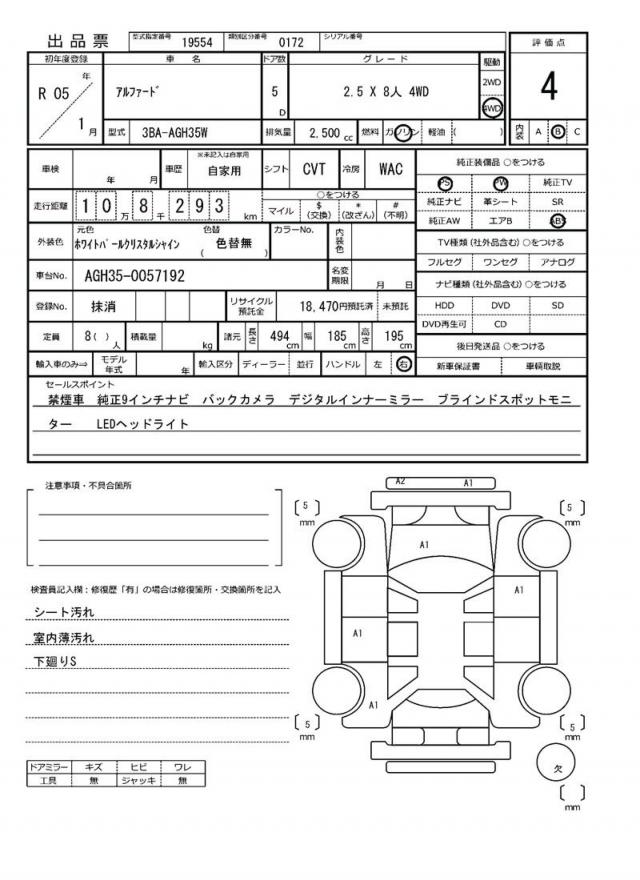 出品票 型式指定番号 19554 類別区分番号 0172 シリアル番号
初年度登録 車名 ドア数 グレード 駆動 評価点
R 05 年 1月 アルファード 5 D 2.5 X 8人 4WD 2WD 4WD 4
型式 3BA-AGH35W 排気量 2,500 cc 燃料 ガソリン 軽油 ( ) 内装 A B C
車検 年 月 車歴 ※未記入は自家用 自家用 シフト CVT 冷房 WAC
純正装備品 ○をつける
PS PW 純正TV
純正ナビ 革シート SR
純正AW エアB ABS
走行距離 10万8千293 km
○をつける
マイル $(交換) *(改ざん) #(不明)
外装色 元色 ホワイトパールクリスタルシャイン 色替 ( 色替無 ) カラーNo. 内装色
TV種類 (社外品含む) ○をつける
フルセグ ワンセグ アナログ
車台No. AGH35-0057192 名変期限 月 日
ナビ種類 (社外品含む) ○をつける
HDD DVD SD
DVD再生可 CD
登録No. 抹消 リサイクル預託金 18,470円預託済 未預託
定員 8( )人 積載量 kg 諸元 長さ 494 cm 幅 185 cm 高さ 195 cm
後日発送品 ○をつける
新車保証書 車輌取説
輸入車のみ⇒ モデル年式 年 輸入区分 ディーラー 並行 ハンドル 左 右
セールスポイント
禁煙車 純正9インチナビ バックカメラ デジタルインナーミラー ブラインドスポットモニ
ター LEDヘッドライト
注意事項・不具合箇所
検査員記入欄：修復歴「有」の場合は修復箇所・交換箇所を記入
シート汚れ
室内薄汚れ
下廻りS
ドアミラー キズ ヒビ ワレ
工具 無 ジャッキ 無
A2 A1
5 mm
5 mm
A1
A1
A1
A1
5 mm
5 mm
欠
mm